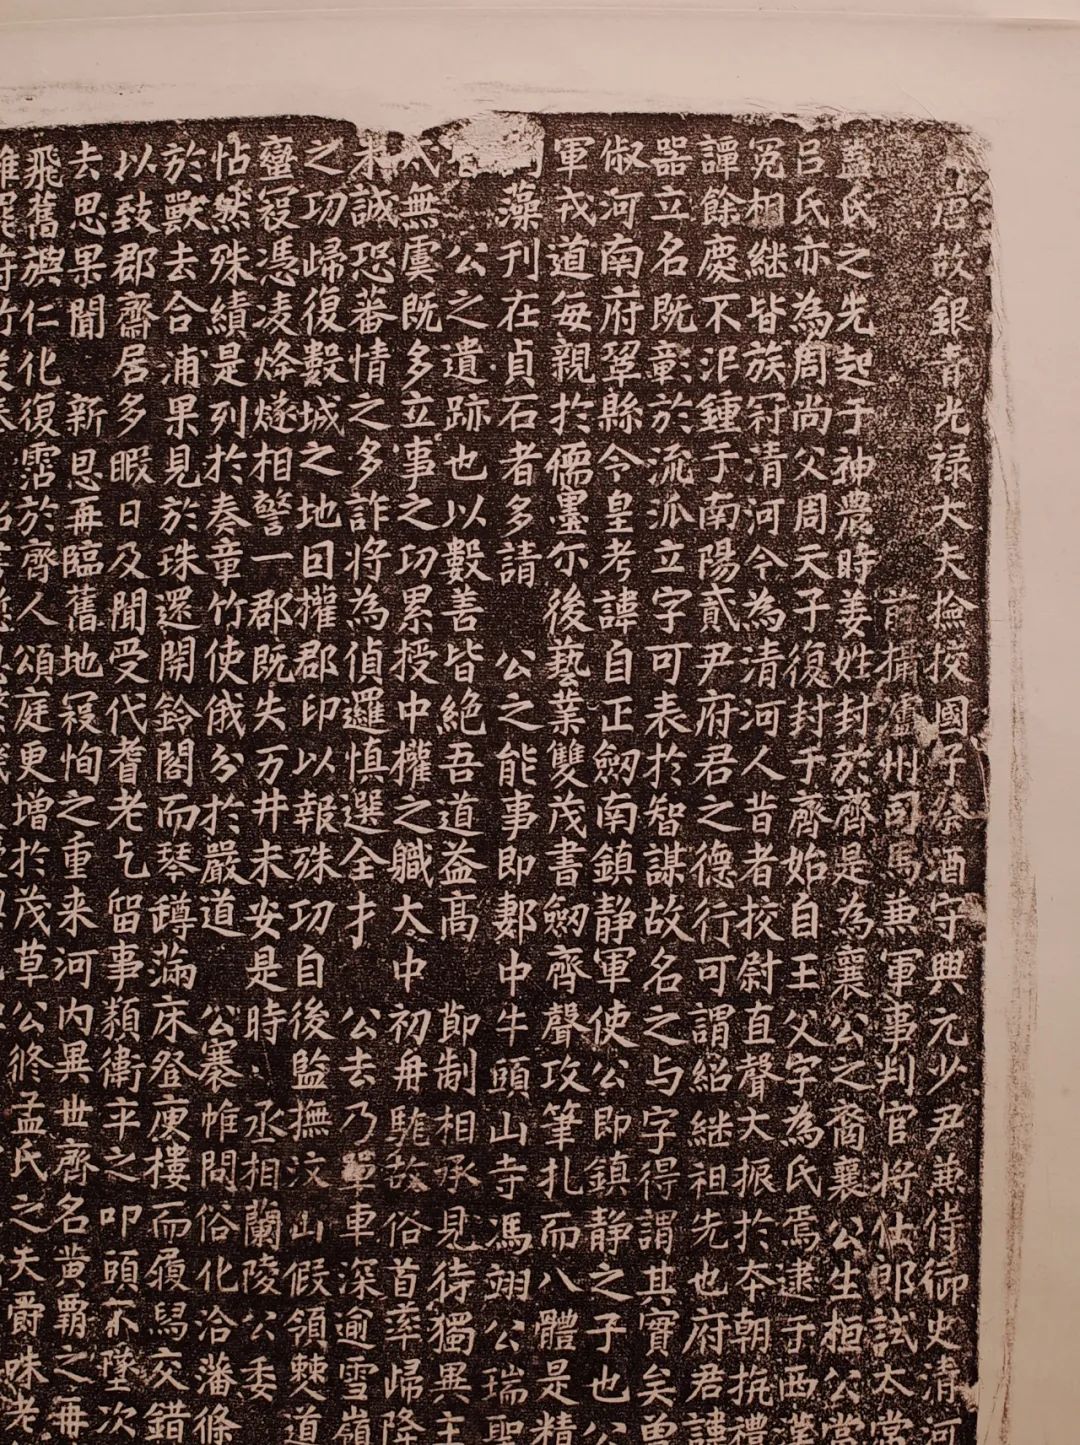 唐故銀青光禄大夫撿挍國子祭酒守興元少尹兼侍御史清河
前攝瀘州司馬兼軍事判官将仕郎試太常
蓋氏之先起于神農時姜姓封於齊是為襄公之裔襄公生桓公當
吕氏亦為周尚父周天子復封于齊始自王父字為氏焉逮于西漢
冕相継皆族冠清河令為清河人昔者挍尉直聲大振於夲朝挩禮
譚餘慶不泯鍾于南陽貳尹府君之德行可謂紹継祖先也府君諱
器立名既彰於流派立字可表於智謀故名之与字得謂其實矣曽
俶河南府鞏縣令皇考諱自正劒南鎮静軍使公即鎮静之子也公
軍戎道每親扵儒墨尔後藝業雙茂書劒齊聲攻筆札而八體是精
藻刊在貞石者多請 公之能事即郪中牛頭山寺馮翊公瑞聖
公之遺跡也以數善皆絶吾道益髙 節制相承見待獨異主
無虞既多立事之功累授中權之軄大中初冉駹故俗首率歸降
未誠恐蕃情之多詐将為偵邏慎選全才 公去乃單車深逾雪嶺
之功歸復數城之地因權郡印以報殊功自後監撫汶山假領㯤道
蠻寇憑凌烽燧相警一郡既失万井未安是時丞相蘭陵公委
怗然殊績是列於奏章竹使俄分於嚴道 公褰帷問俗化洽藩條
於獸去合浦果見於珠還開鈴閣而琴罇滿床登庾樓而履舄交錯
以致郡齋居多暇日及聞受代耆老乞留事類衛平之叩頭不墜次
去思果聞 新恩再臨舊地寇恂之重来河内異世齊名黄霸之再
飛舊旟仁化復霑於齊人頌庭更增於茂草公修孟氏之夫爵昧老